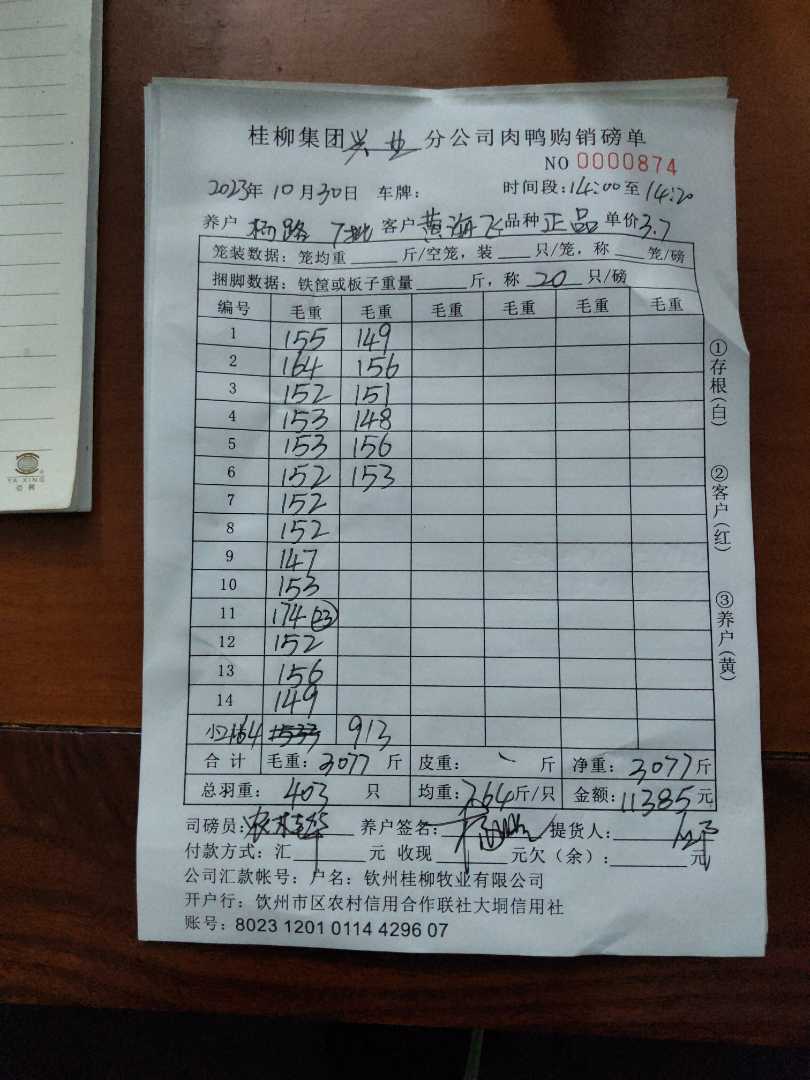 桂柳集团兴业分公司肉鸭购销磅单
NO 0000874
2023年10月30日 车牌： 时间段：14:00至14:20
养户 杨路 客户黄海飞品种正品单价3.7
笼装数据：笼均重 斤/空笼，装 只/笼，称 笼/磅
捆脚数据：铁筐或板子重量 斤，称 20 只/磅
编号 毛重 毛重 毛重 毛重 毛重 毛重
1 155 149
2 164 156
3 152 151
4 153 148
5 153 156
6 152 153
7 152
8 152
9 147
10 153
11 174 23
12 152
13 156
14 149
小 2164 913
合计 毛重：3077斤 皮重： 斤 净重：3077斤
总羽重：403 只 均重：7.64斤/只 金额：11385元
司磅员： 养户签名： 提货人：
付款方式：汇 元 收现 元欠（余）： 元
公司汇款帐号：户名：钦州桂柳牧业有限公司
开户行：饮州市区农村信用合作联社大垌信用社
账号：8023 1201 0114 4296 07
①存根(白)
②客户(红)
③养户(黄)
YA XING
亚興